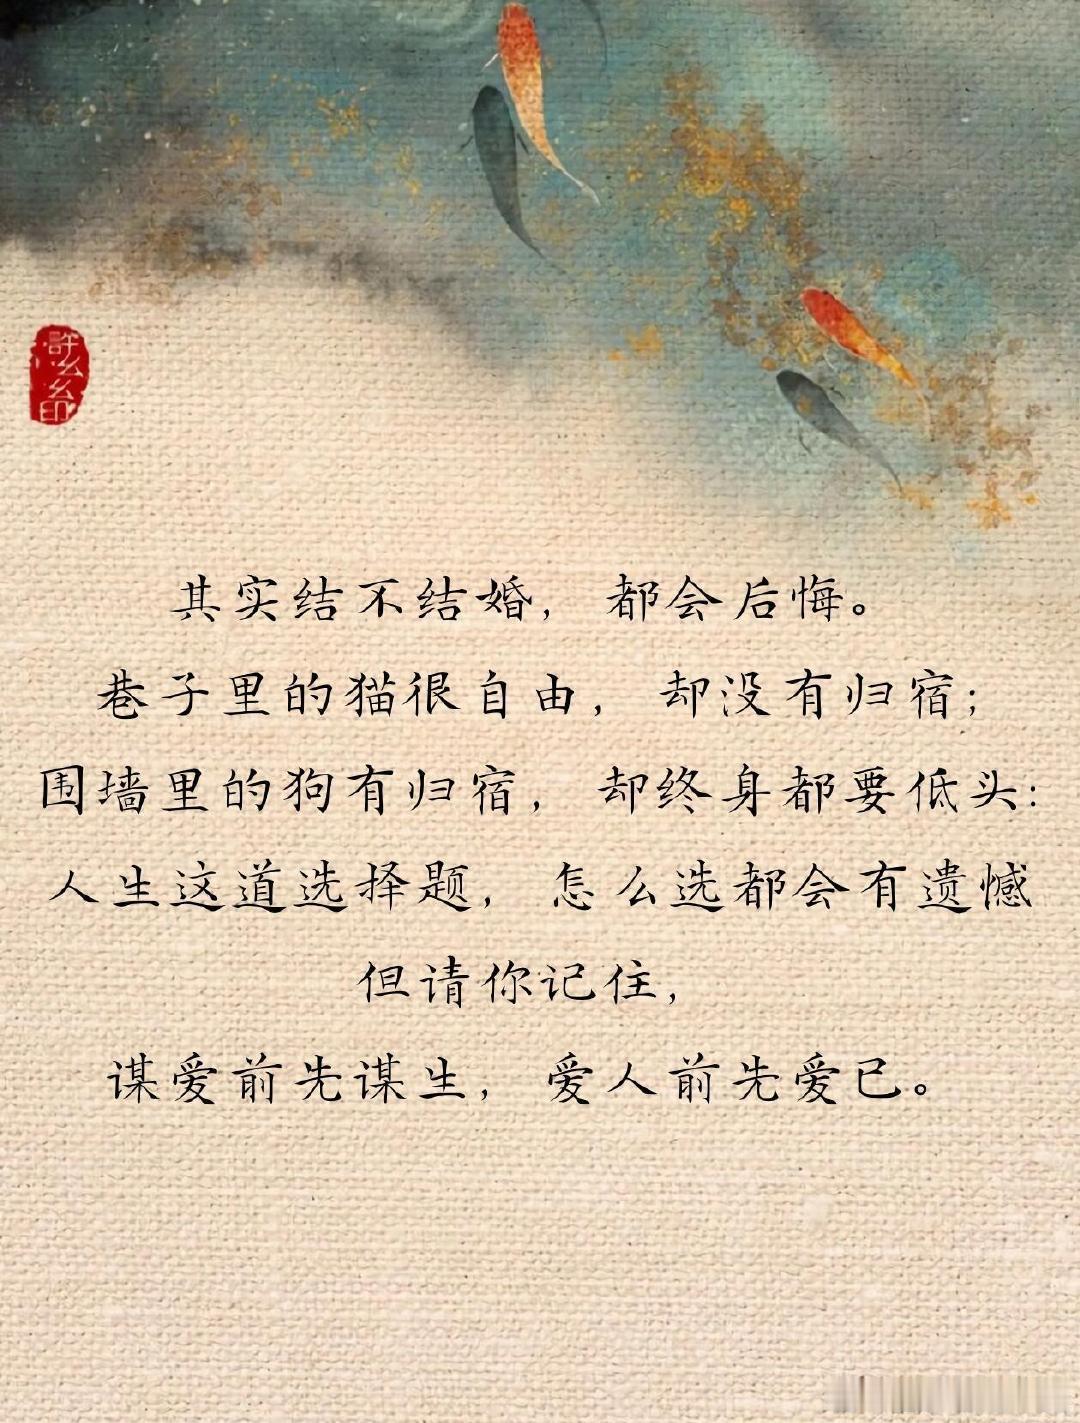 許么幺印
其实结不结婚，都会后悔。
巷子里的猫很自由，却没有归宿；
围墙里的狗有归宿，却终身都要低头：
人生这道选择题，怎么选都会有遗憾
但请你记住，
谋爱前先谋生，爱人前先爱已。